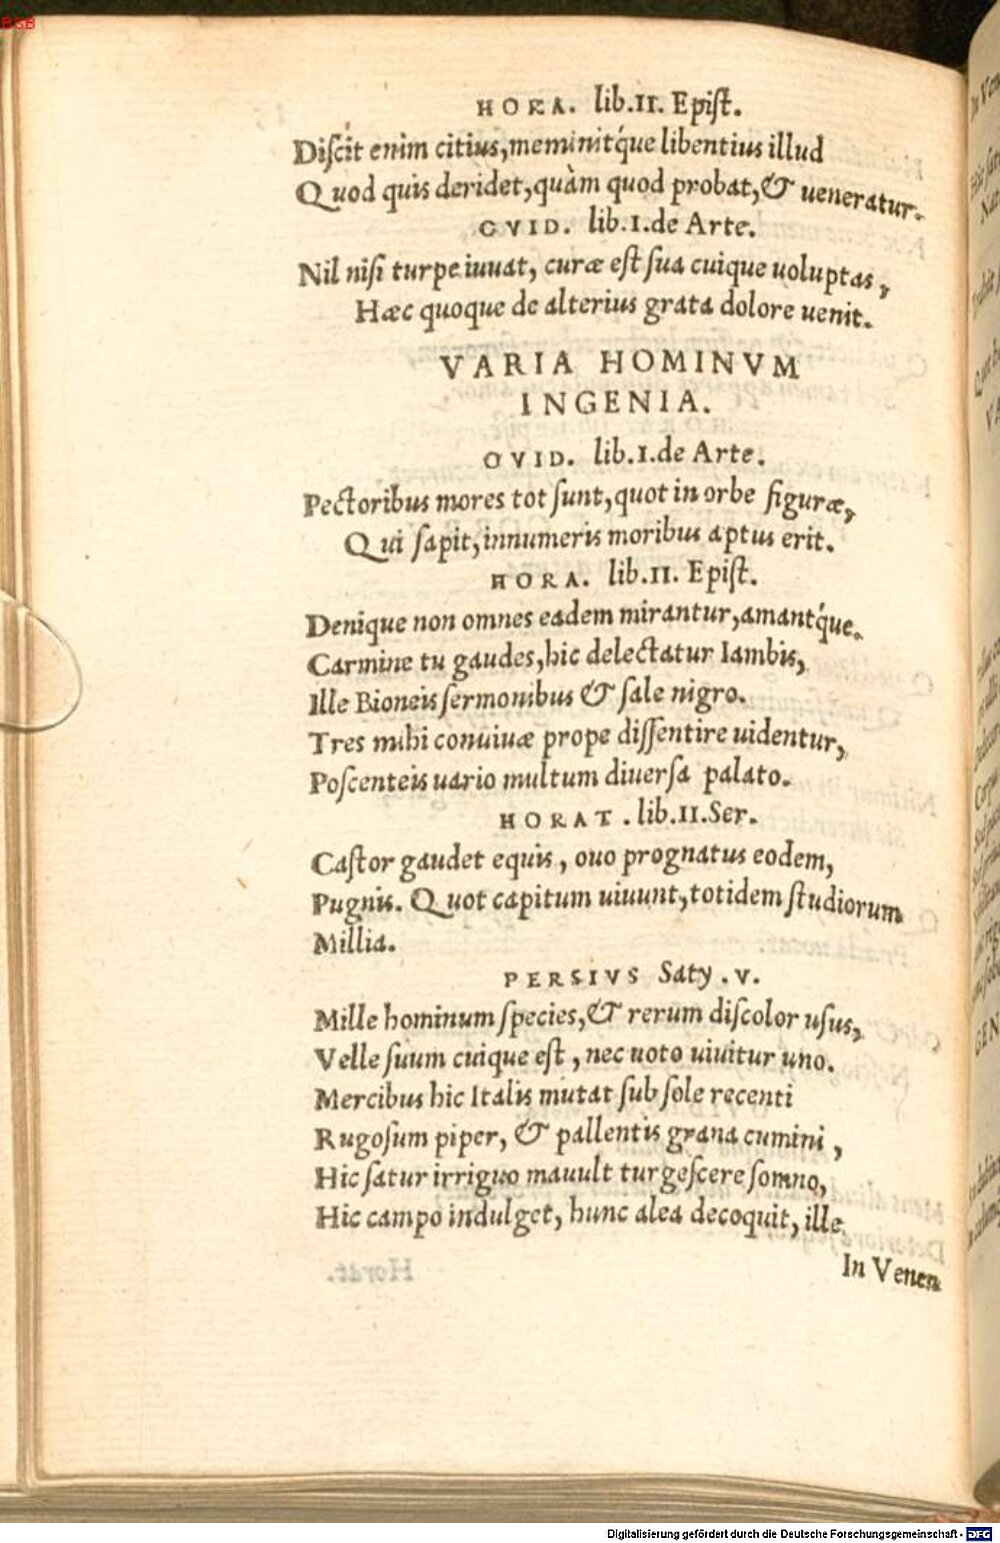 BSB
HORA. lib.II. Epiſt.
Diſcit enim citius, meminit'que libentius illud
Quod quis deridet, quàm quod probat, & ueneratur.
OVID. lib.I.de Arte.
Nil niſi turpe iuuat, curæ eſt ſua cuique uoluptas,
Hæc quoque de alterius grata dolore uenit.
VARIA HOMINVM
INGENIA.
OVID. lib.I.de Arte.
Pectoribus mores tot ſunt, quot in orbe figuræ,
Qui ſapit, innumeris moribus aptus erit.
HORA. lib.II. Epiſt.
Denique non omnes eadem mirantur, amant'que.
Carmine tu gaudes, hic delectatur Iambis,
Ille Bioneis ſermonibus & ſale nigro.
Tres mihi conuiuæ prope diſſentire uidentur,
Poſcenteis uario multum diuerſa palato.
HORAT. lib.II.Ser.
Caſtor gaudet equis, ouo prognatus eodem,
Pugnis. Quot capitum uiuunt, totidem ſtudiorum
Millia.
PERSIVS Saty.V.
Mille hominum ſpecies, & rerum diſcolor uſus,
Velle ſuum cuique eſt, nec uoto uiuitur uno.
Mercibus hic Italis mutat ſub ſole recenti
Rugoſum piper, & pallentis grana cumini,
Hic ſatur irriguo mauult turgeſcere ſomno,
Hic campo indulget, hunc alea decoquit, ille
In Venen
Digitalisierung gefördert durch die Deutsche Forschungsgemeinschaft - DFG